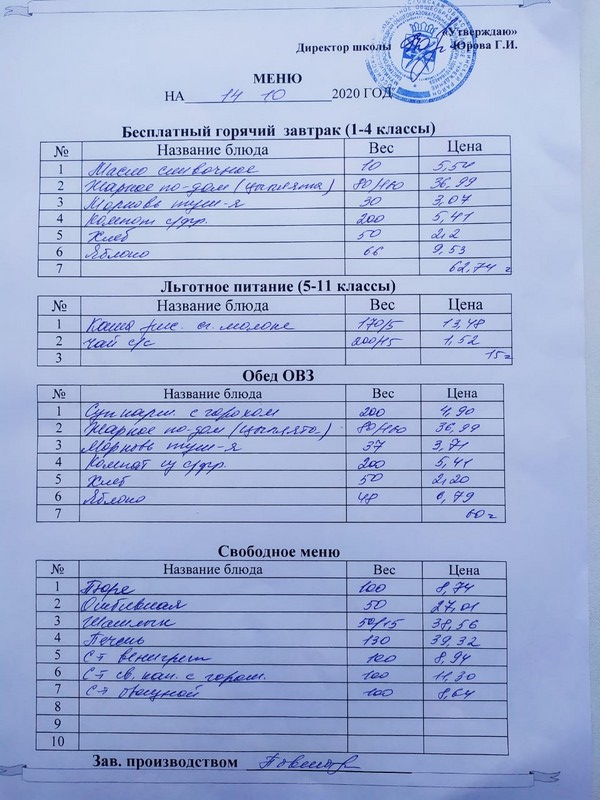 «Утверждаю»
Директор школы Юрова Г.И.
МЕНЮ
НА 14 10 2020 ГОД
Бесплатный горячий завтрак (1-4 классы)
№ Название блюда Вес Цена
1 Масло сливочное 10 5,54
2 Жаркое по-дом (цыплята) 80/100 36,99
3 Морковь туш-я 30 3,07
4 Компот с/фр. 200 5,41
5 Хлеб 50 2,2
6 Яблоко 66 9,53
7 62,74
Льготное питание (5-11 классы)
№ Название блюда Вес Цена
1 Каша рис. сг. молоке 170/5 13,48
2 чай с/с 200/15 1,52
3 15
Обед ОВЗ
№ Название блюда Вес Цена
1 Суп карт. с горохом 200 4,90
2 Жаркое по-дом (цыплята) 80/100 36,99
3 Морковь туш-я 37 3,71
4 Компот из с/фр. 200 5,41
5 Хлеб 50 2,20
6 Яблоко 48 6,79
7 60
Свободное меню
№ Название блюда Вес Цена
1 Пюре 100 8,74
2 Отбивная 50 27,01
3 Шашлык 50/15 38,56
4 Печень 130 39,32
5 С-т венигрет 100 8,94
6 С-т св. кап. с горош. 100 11,30
7 С-т 100 8,64
8
9
10
Зав. производством